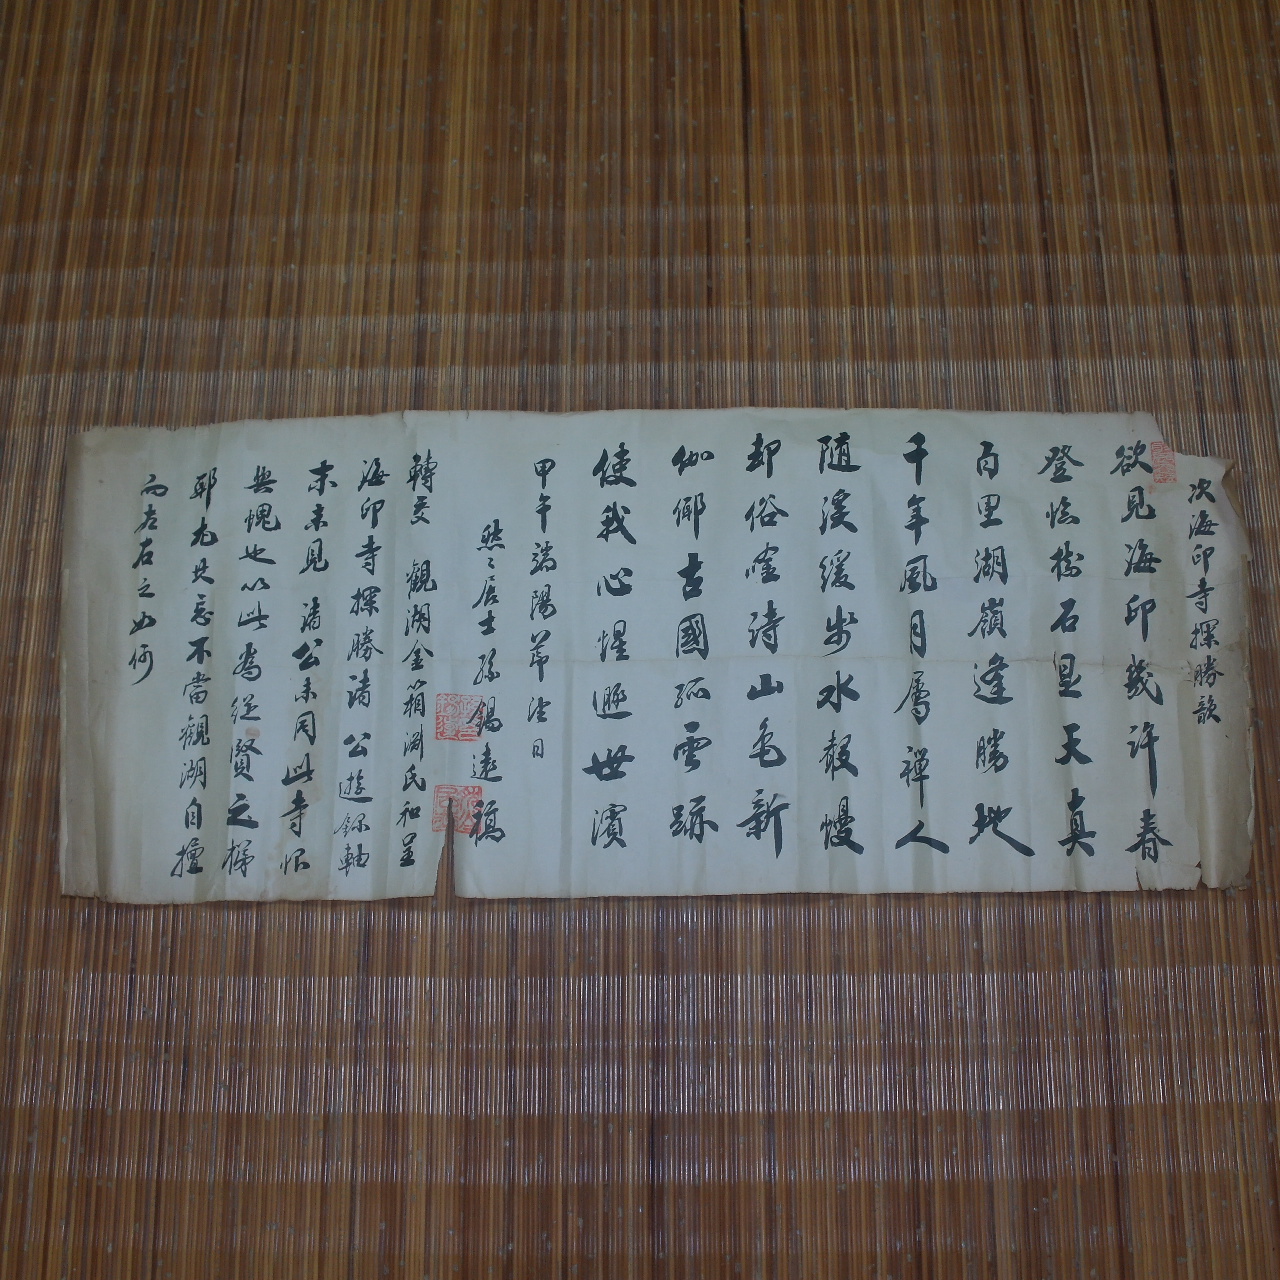 次海印寺探勝韻
欲見海印幾許春
登臨樹石显天真
百里湖嶺逢勝地
千年風月屬禪人
随溪緩步水聲慢
却俗吟詩山色新
伽倻古國孤雲跡
使我心惺遯世濱
甲午端陽節後日
然々居士孫錫遠稿
轉交 觀湖金箱淵氏和呈
海印寺探勝諸公遊錄軸
末未見諸公未同此寺恨
與愧也以此為従賢之梯
耶尤其忘不當觀湖自擅
而左右之如何